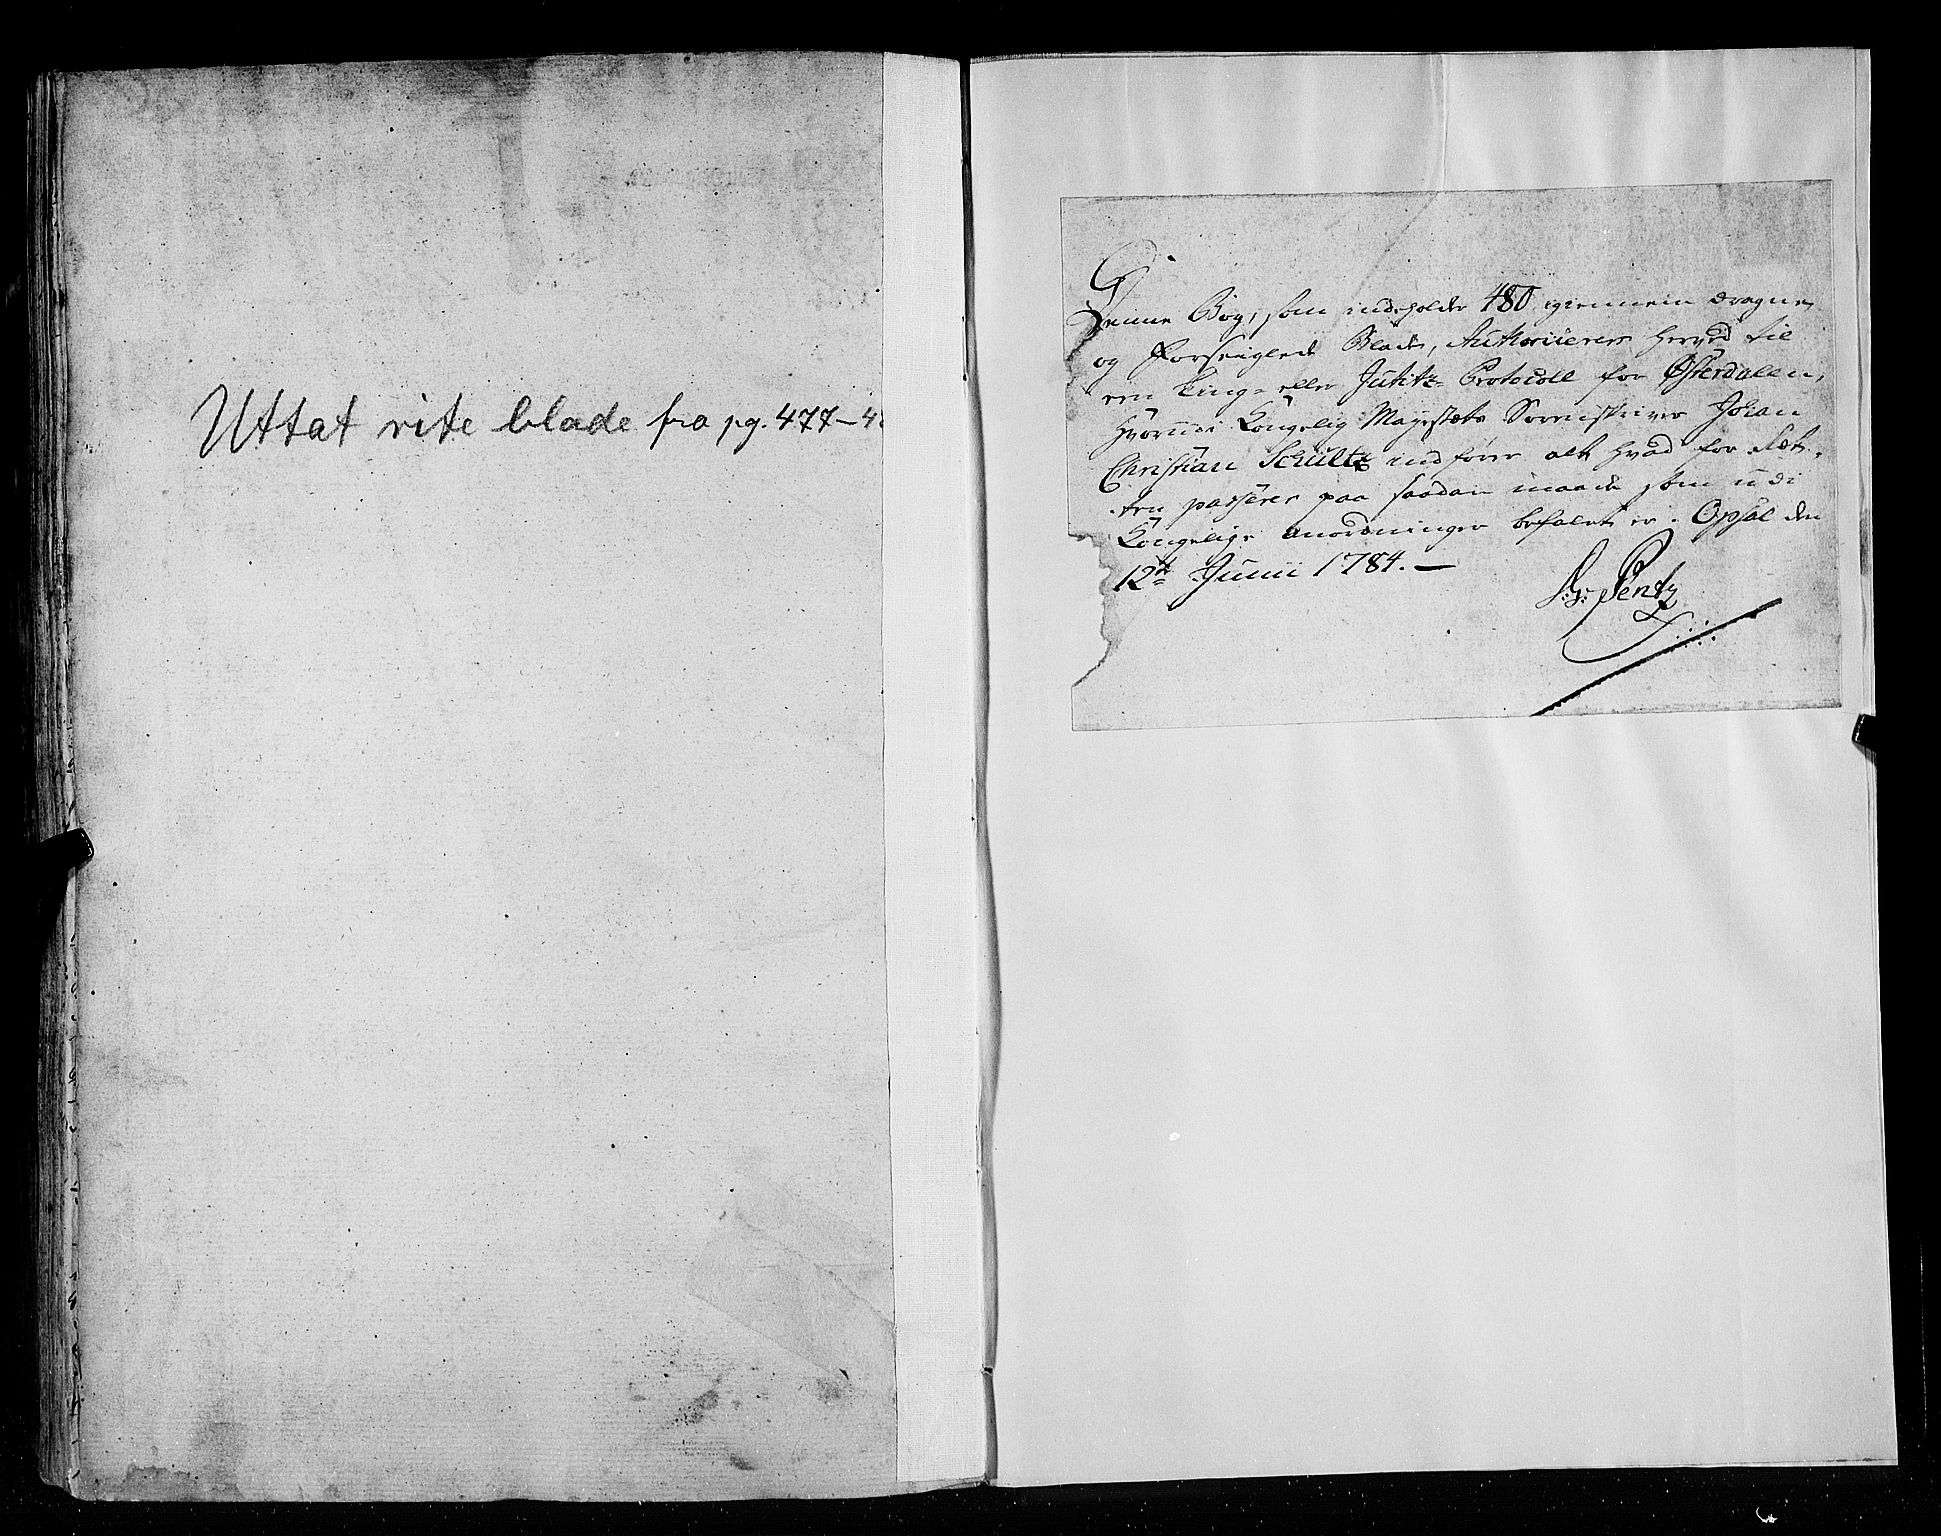 Uttat rite blade fra pg. 477–4
Denne Bog, som indeholder 480 igiennem dragne,
og Forseiglede Blade, Authoriseres herved til
een Ting- eller Justitz- Protocoll for Østerdalen,
hvorudi Kongelig Majestæts Sorenskriver Johan
Christian Schultz indfører alt hvad for Ræt-
ten passerer paa saadan maade som udi
Kongelige anordninger befalet er. Opsal den
12te Junii 1784. —
Pentz